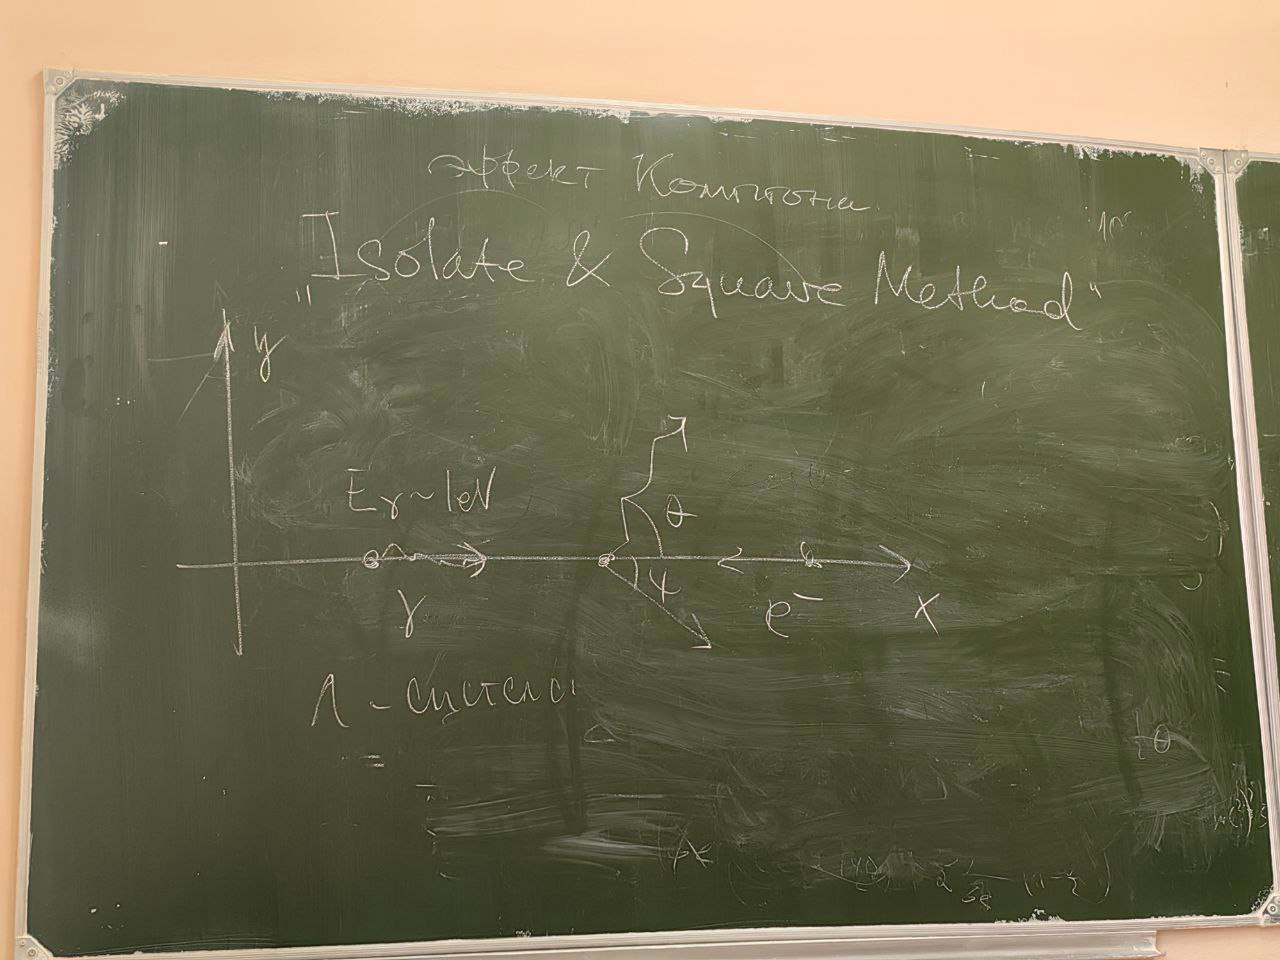 эффект Комптона
"Isolate & Square Method"
y
Eγ ~ 1eV
θ
γ
φ
e⁻
x
Л - система
θ